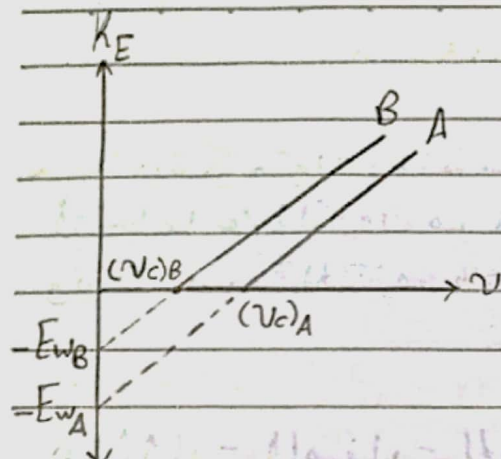 K_E
B
A
(νc)_B
ν
(νc)_A
-E_{W_B}
-E_{W_A}